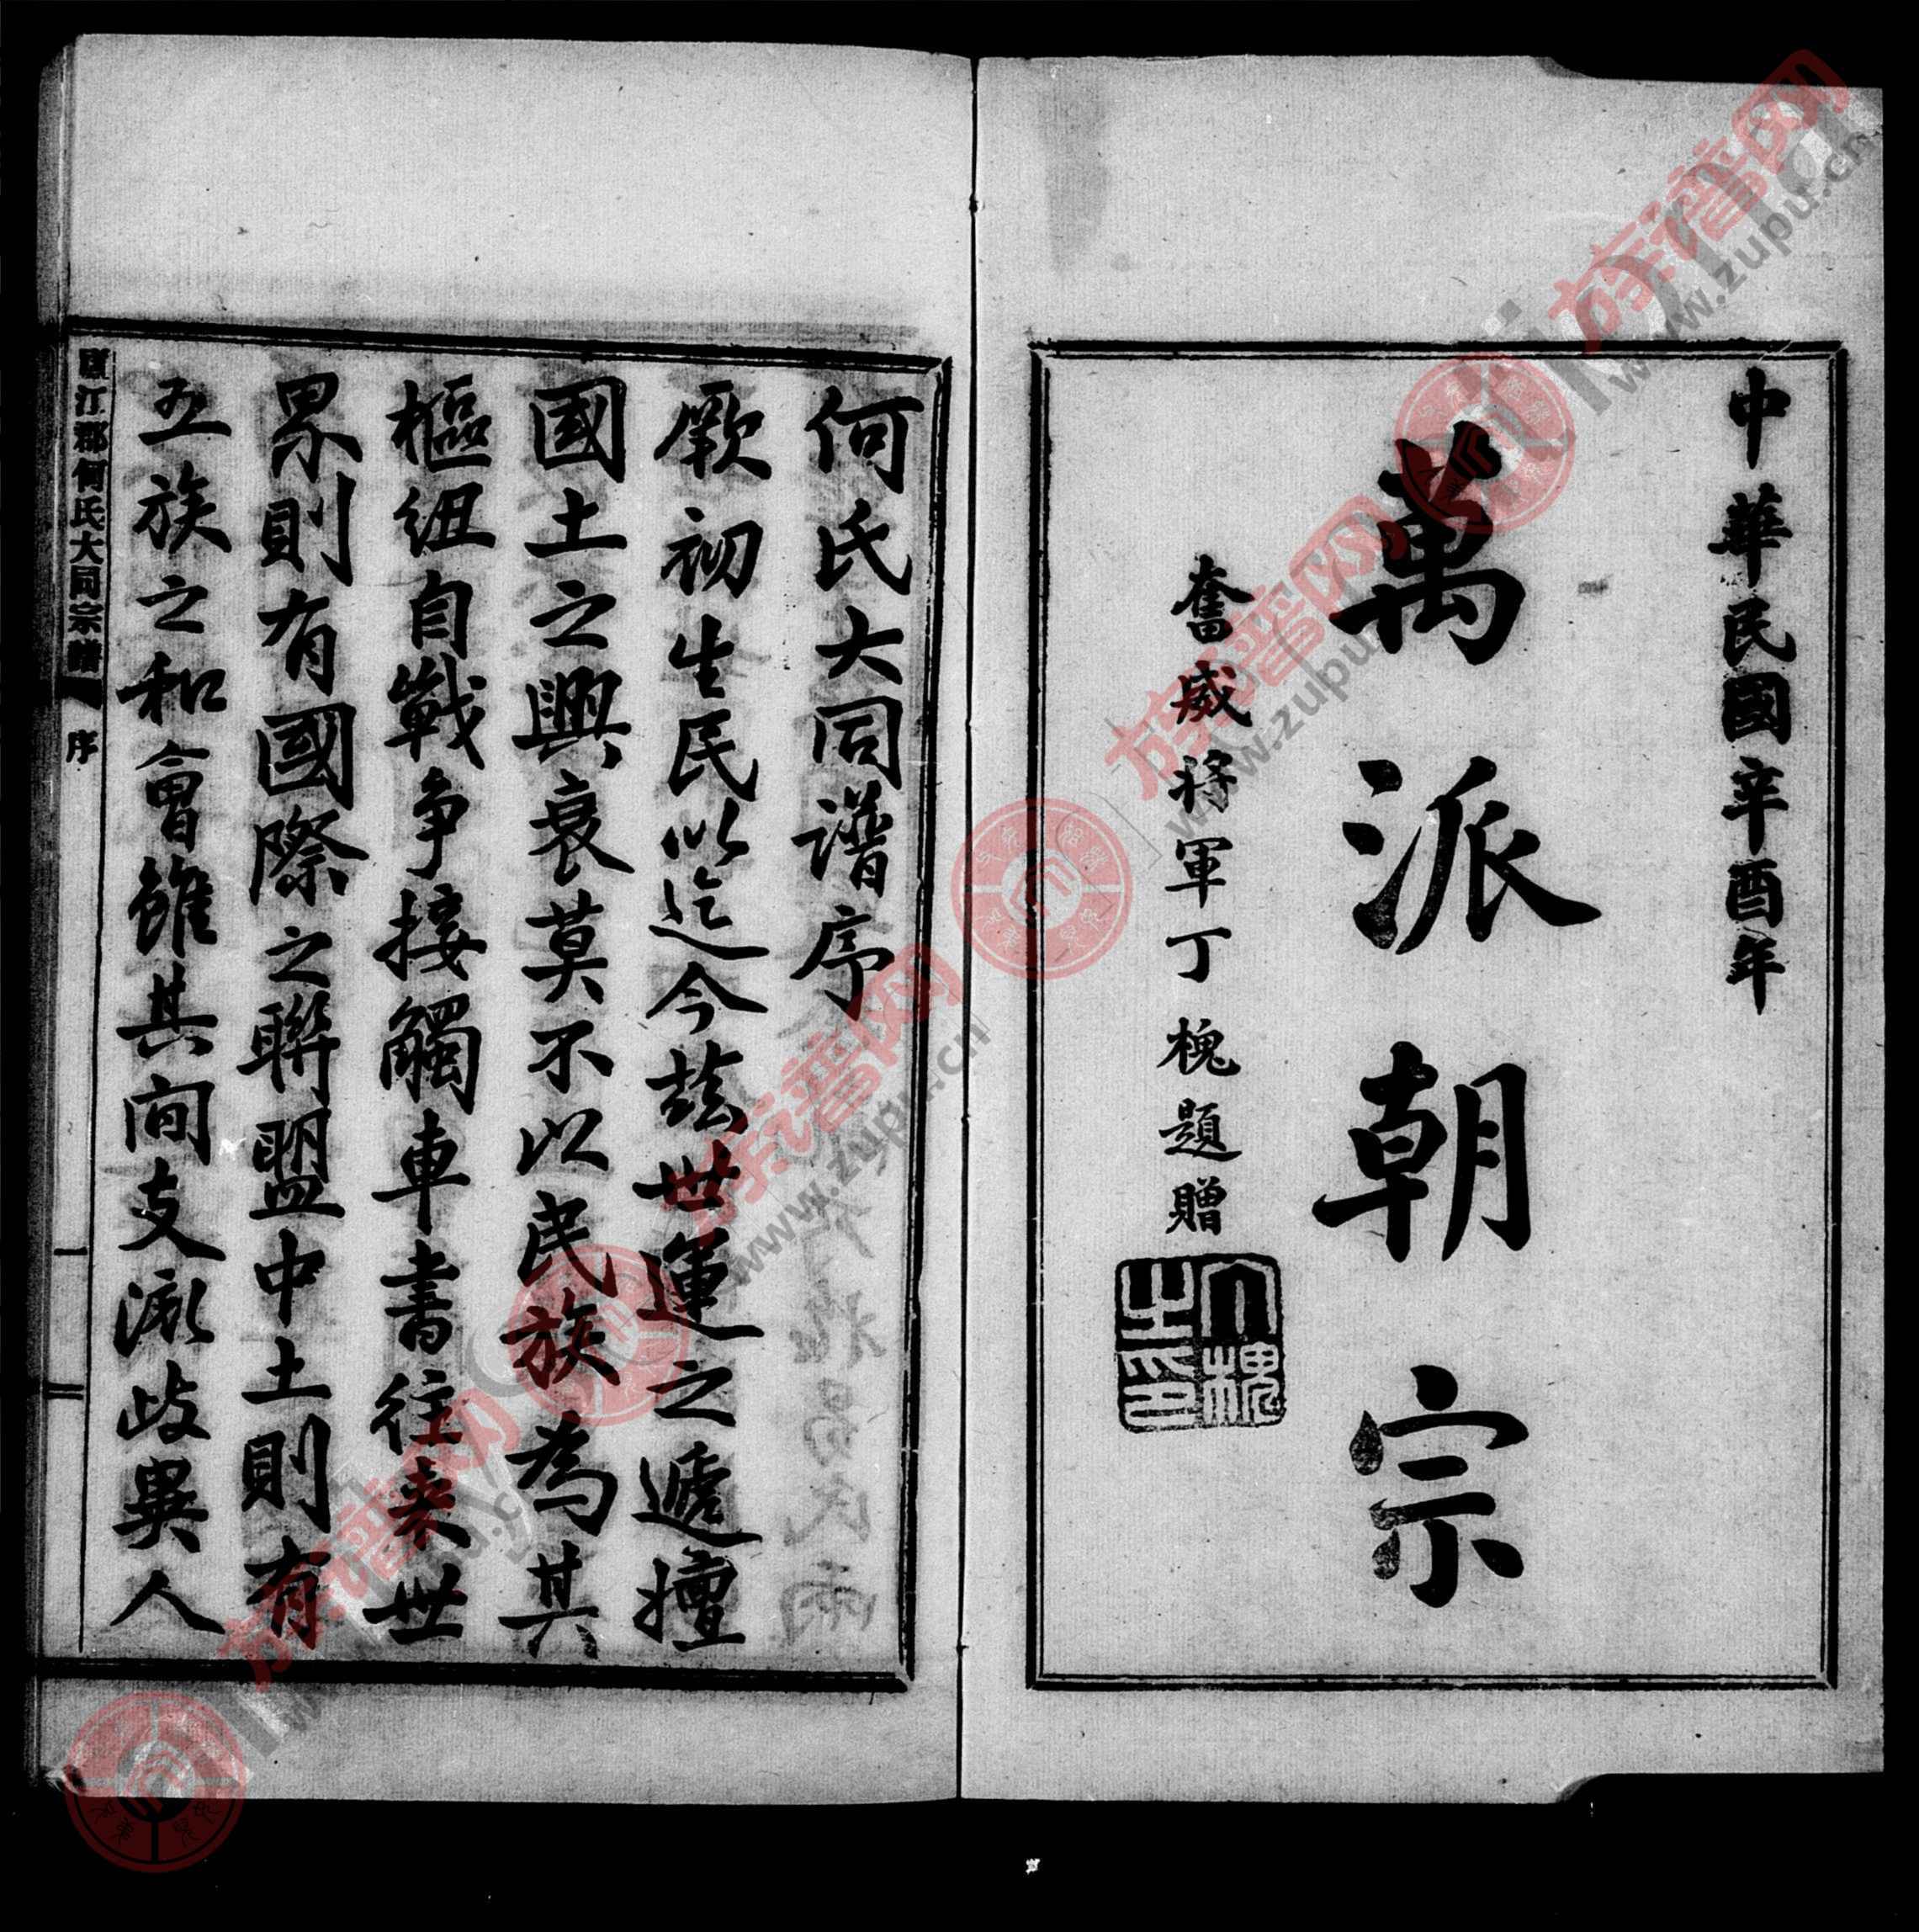 中華民國辛酉年
萬派朝宗
奮威將軍丁槐題贈
丁槐之印
何氏大同譜序
厥初生民以迄今茲世運之遞嬗
國土之興衰莫不以民族為其
樞紐自戰爭接觸車書往來世
界則有國際之聯盟中土則有
五族之和會雖其间支派歧異人
廬江郡何氏大同宗譜 序 一
族谱网
www.zupu.cn
族谱网
www.zupu.cn
族谱网
www.zupu.cn
族谱网
www.zupu.cn